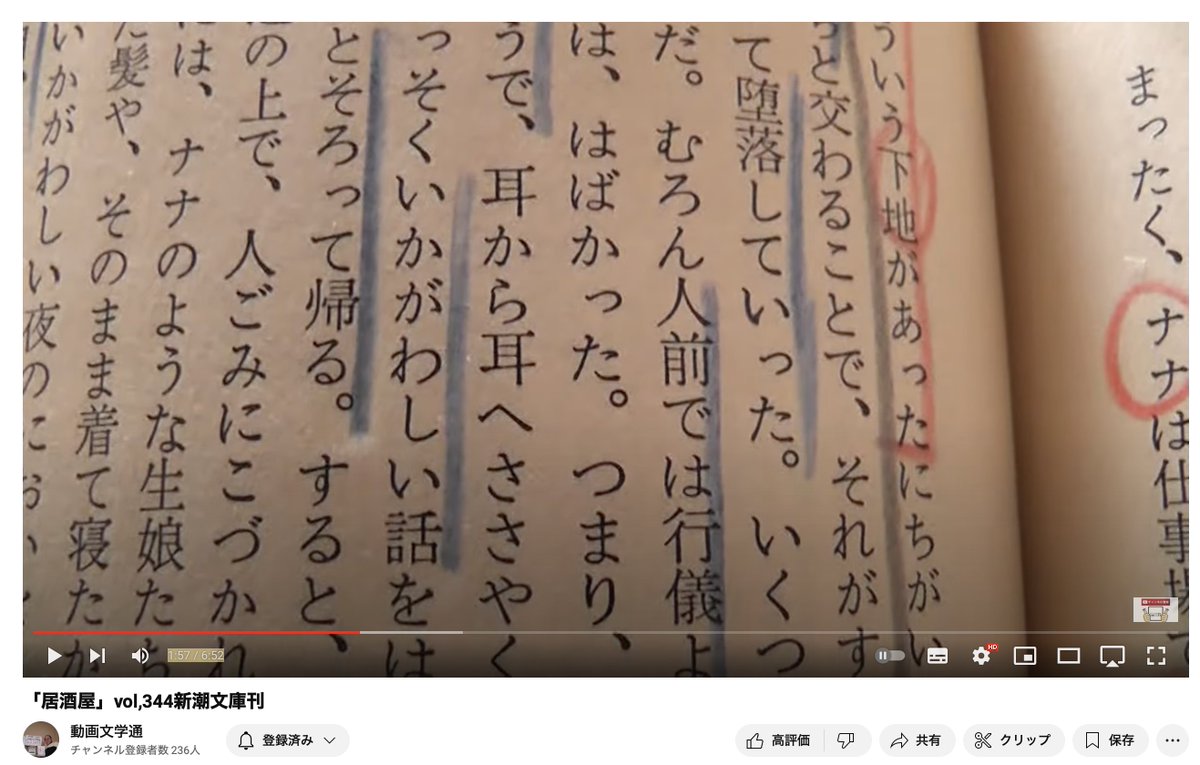 まったく、
ナナは仕事場で
ういう下地があったにちがい
っと交わることで、それがす
て堕落していった。いくつ
だ。むろん人前では行儀よ
は、はばかった。つまり、
うで、耳から耳へささやく
っそくいかがわしい話をは
とそろって帰る。すると、
の上で、人ごみにこづかれ
には、ナナのような生娘たち
た髪や、そのまま着て寝たか
いかがわしい夜のにおい
1:57 / 6:52
HD
「居酒屋」vol,344新潮文庫刊
動画文学通
チャンネル登録者数 236人
登録済み
高評価
共有
クリップ
保存